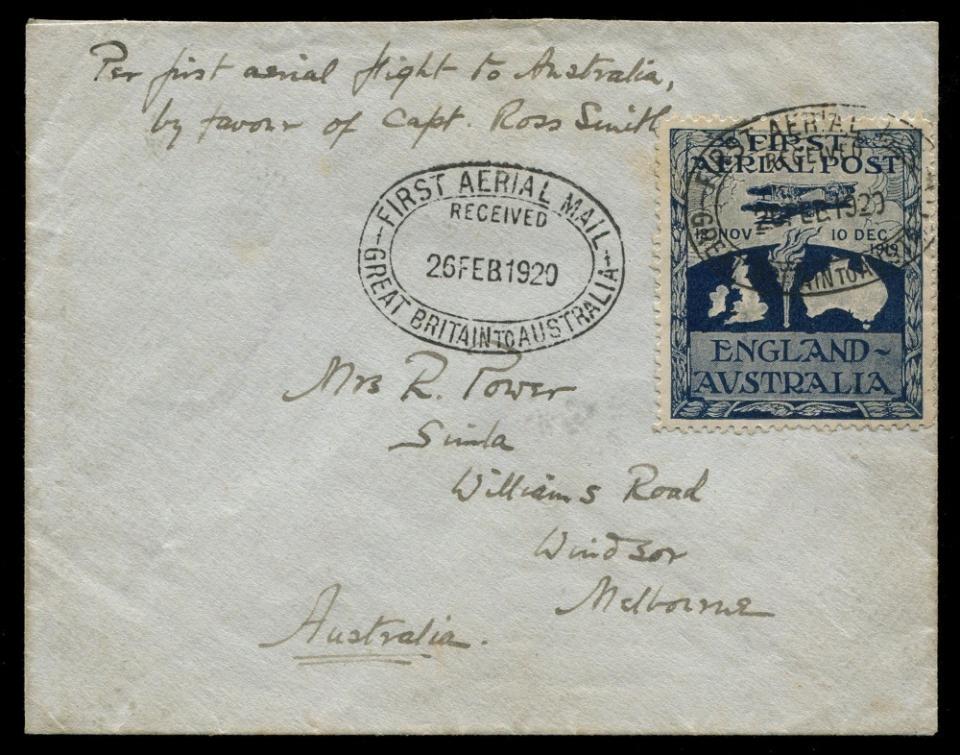 Per first aerial flight to Australia,
by favour of Capt. Ross Smith
FIRST AERIAL MAIL
RECEIVED
26FEB.1920
GREAT BRITAIN TO AUSTRALIA
FIRST AERIAL
RECEIVED
26FEB1920
BRITAIN TO A
FIRST
AERIAL POST
NOV 10 DEC
1919
ENGLAND-
AVSTRALIA
Mrs R. Power
Simla
Williams Road
Windsor
Melbourne
Australia.